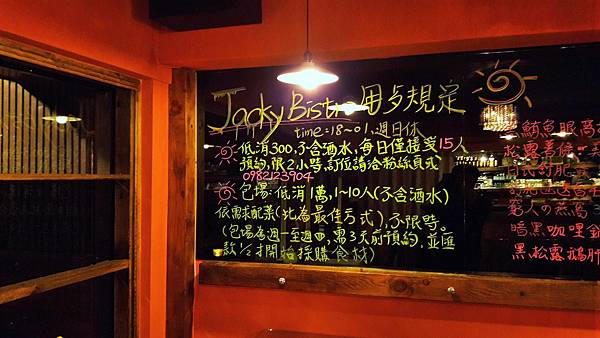 Jacky Bistro 用歺規定
time=18~01,週日休
低消300,不含酒水,每日僅接客15人
預約,限2小時,訂位請洽粉絲頁或
0982123904
包場:低消1萬,1~10人(不含酒水)
依需求配菜(此為最佳方式),不限時。
(包場為週一至週四,需3天前預約,並匯
款1/2才開始採購食材)
鮪魚眼窩
松露姜
日式甜肥
窮人の燕窩
暗黑咖哩
黑松露鵝肝